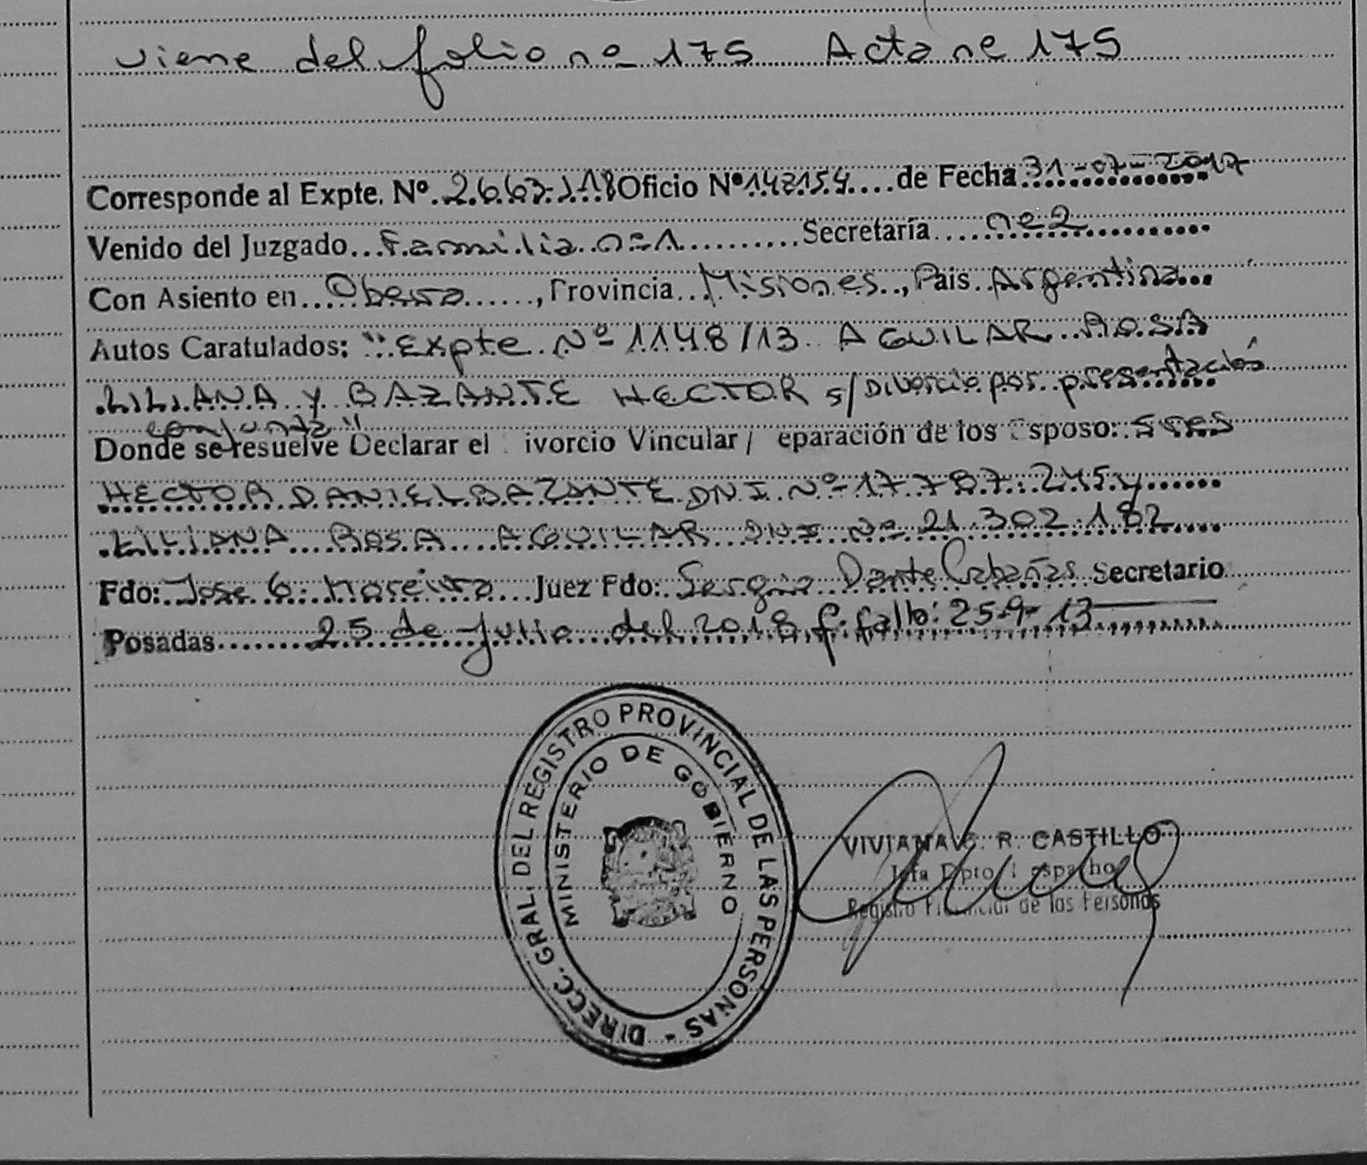 viene del folio nº 175 Acta nº 175
Corresponde al Expte. Nº. 2663-J-18 Oficio Nº 142154 de Fecha 31-07-2017
Venido del Juzgado Familia nº 1 Secretaría nº 2
Con Asiento en Obera, Provincia Misiones, País Argentina
Autos Caratulados: "Expte Nº 1148/13 AGUILAR ROSA
LILIANA y BAZANTE HECTOR s/ Divorcio por presentación
conjunta"
Donde se resuelve Declarar el ivorcio Vincular/ eparación de los Esposo: sres
HECTOR DANIEL BAZANTE DNI Nº 17.787.245 y
LILIANA ROSA AGUILAR DNI Nº 21.302.182
Fdo: Jose G. Moreira Juez Fdo: Sergio Dante Cabañas Secretario
Posadas 25 de Julio del 2018 f. fallo: 25-9-13
DIRECC. GRAL. DEL REGISTRO PROVINCIAL DE LAS PERSONAS -
MINISTERIO DE GOBIERNO
VIVIANA R. CASTILLO
Jefa Dpto. Despacho
Registro Provincial de las Personas